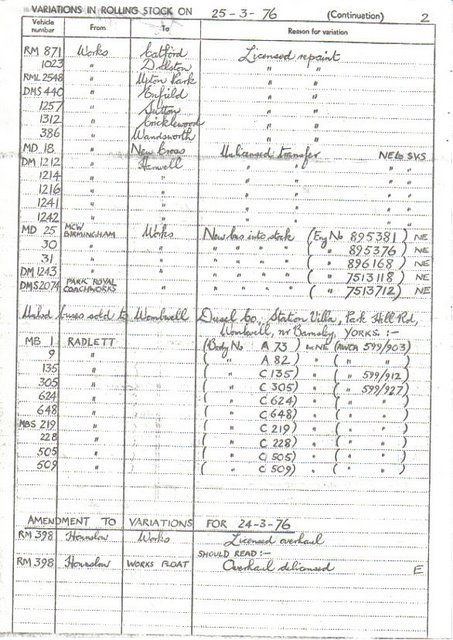 VARIATIONS IN ROLLING STOCK ON 25-3-76 (Continuation) 2
Vehicle number From To Reason for variation
RM 871 Works Catford Licensed repaint
1023 " Dalston " "
RML 2548 " Upton Park " "
DMS 440 " Enfield " "
1257 " Sutton " "
1312 " Cricklewood " "
386 " Wandsworth " "
MD 18 " New Cross Unlicensed transfer NE to SVS
DM 1212 " Hanwell " " " " "
1214 " " " " " " "
1216 " " " " " " "
1241 " " " " " " "
1242 " " " " " " "
MD 25 MCW BIRMINGHAM Works New bus into stock (Eng No 895381) NE
30 " " " " " " ( " " 895376) NE
31 " " " " " " ( " " 896168) NE
DM 1243 " " " " " " ( " " 7513118) NE
DMS 2074 PARK ROYAL COACHWORKS " " " " " ( " " 7513712) NE
Unlsd buses sold to Wombwell Diesel Co, Station Villa, Park Hill Rd,
Wombwell, nr Barnsley, YORKS. :-
MB 1 RADLETT (Body No A 73) NE (AWEA 599/903)
9 " ( " A 82) " ( " " )
135 " ( " C 135) " ( " 599/912)
305 " ( " C 305) " ( " 599/927)
624 " ( " C 624) " ( " " )
648 " ( " C 648) " ( " " )
MBS 219 " ( " C 219) " ( " " )
228 " ( " C 228) " ( " " )
505 " ( " C 505) " ( " " )
509 " ( " C 509) " ( " " )
AMENDMENT TO VARIATIONS FOR 24-3-76
RM 398 Hounslow Works Licensed overhaul
SHOULD READ :-
RM 398 Hounslow WORKS FLOAT Overhaul delicensed E